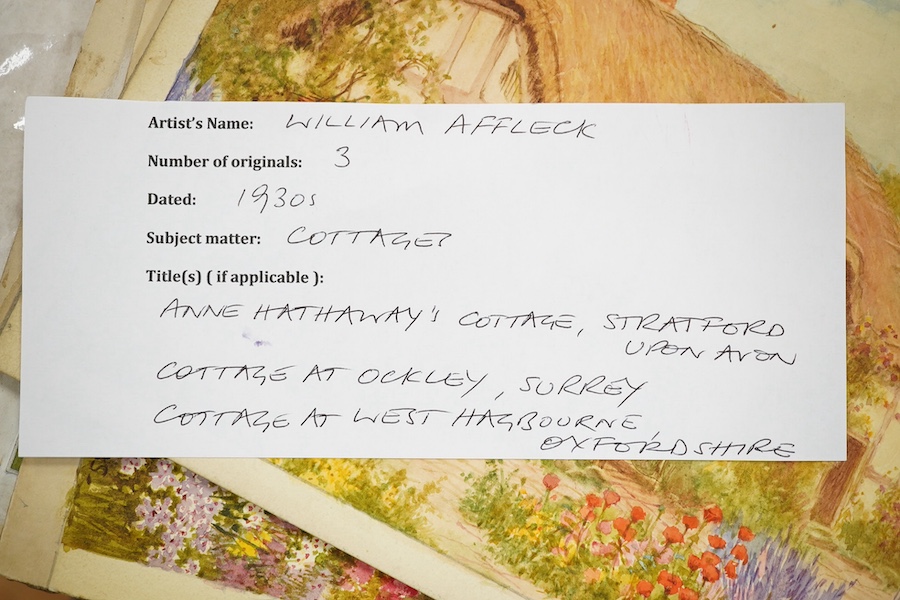 Artist's Name: WILLIAM AFFLECK
Number of originals: 3
Dated: 1930s
Subject matter: COTTAGES
Title(s) ( if applicable ):
ANNE HATHAWAY'S COTTAGE, STRATFORD
UPON AVON
COTTAGE AT OCKLEY, SURREY
COTTAGE AT WEST HAGBOURNE
OXFORDSHIRE